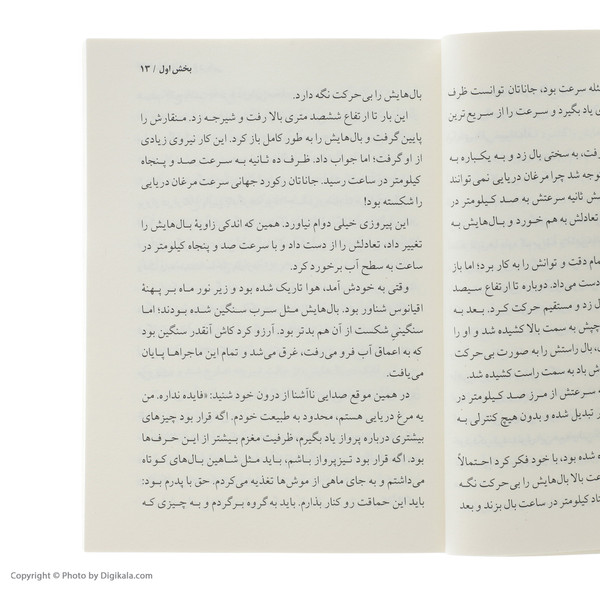 ئله سرعت بود، جاناتان توانست ظرف
ی یاد بگیرد و سرعت را از سریع ترین
فت، به سختی بال زد و به یکباره به
وجه شد چرا مرغان دریایی نمی‌توانند
ش ثانیه سرعتش به صد کیلومتر در
تعادلش به هم خورد و بال‌هایش به
مام دقت و توانش را به کار برد؛ اما باز
دست می‌داد. دوباره تا ارتفاع سیصد
ل زد و مستقیم حرکت کرد. بعد به
چپش به سمت بالا کشیده شد و او را
، بال راستش را به صورت بی‌حرکت
ش باد به سمت راست کشیده شد.
ه سرعتش از مرز صد کیلومتر در
تبدیل شده و بدون هیچ کنترلی به
ده شده بود، با خود فکر کرد احتمالاً
عت بالا بال‌هایش را بی‌حرکت نگه
تاد کیلومتر در ساعت بال بزند و بعد
بخش اول / ۱۳
بال‌هایش را بی‌حرکت نگه دارد.
این بار تا ارتفاع ششصد متری بالا رفت و شیرجه زد. منقارش را
پایین گرفت و بال‌هایش را به طور کامل باز کرد. این کار نیروی زیادی
از او گرفت؛ اما جواب داد. ظرف ده ثانیه به سرعت صد و پنجاه
کیلومتر در ساعت رسید. جاناتان رکورد جهانی سرعت مرغان دریایی
را شکسته بود!
این پیروزی خیلی دوام نیاورد. همین که اندکی زاویهٔ بال‌هایش را
تغییر داد، تعادلش را از دست داد و با سرعت صد و پنجاه کیلومتر در
ساعت به سطح آب برخورد کرد.
وقتی به خودش آمد، هوا تاریک شده بود و زیر نور ماه بر پهنهٔ
اقیانوس شناور بود. بال‌هایش مثل سرب سنگین شده بودند؛ اما
سنگینیِ شکست از آن هم بدتر بود. آرزو کرد کاش آنقدر سنگین بود
که به اعماق آب فرو می‌رفت، غرق می‌شد و تمام این ماجراها پایان
می‌یافت.
در همین موقع صدایی ناآشنا از درون خود شنید: «فایده نداره. من
یه مرغ دریایی هستم، محدود به طبیعت خودم. اگه قرار بود چیزهای
بیشتری درباره پرواز یاد بگیرم، ظرفیت مغزم بیشتر از این حرف‌ها
بود. اگه قرار بود تیزپرواز باشم، باید مثل شاهین بال‌های کوتاه
می‌داشتم و به جای ماهی از موش‌ها تغذیه می‌کردم. حق با پدرم بود:
باید این حماقت رو کنار بذارم. باید به گروه برگردم و به چیزی که
Copyright © Photo by Digikala.com